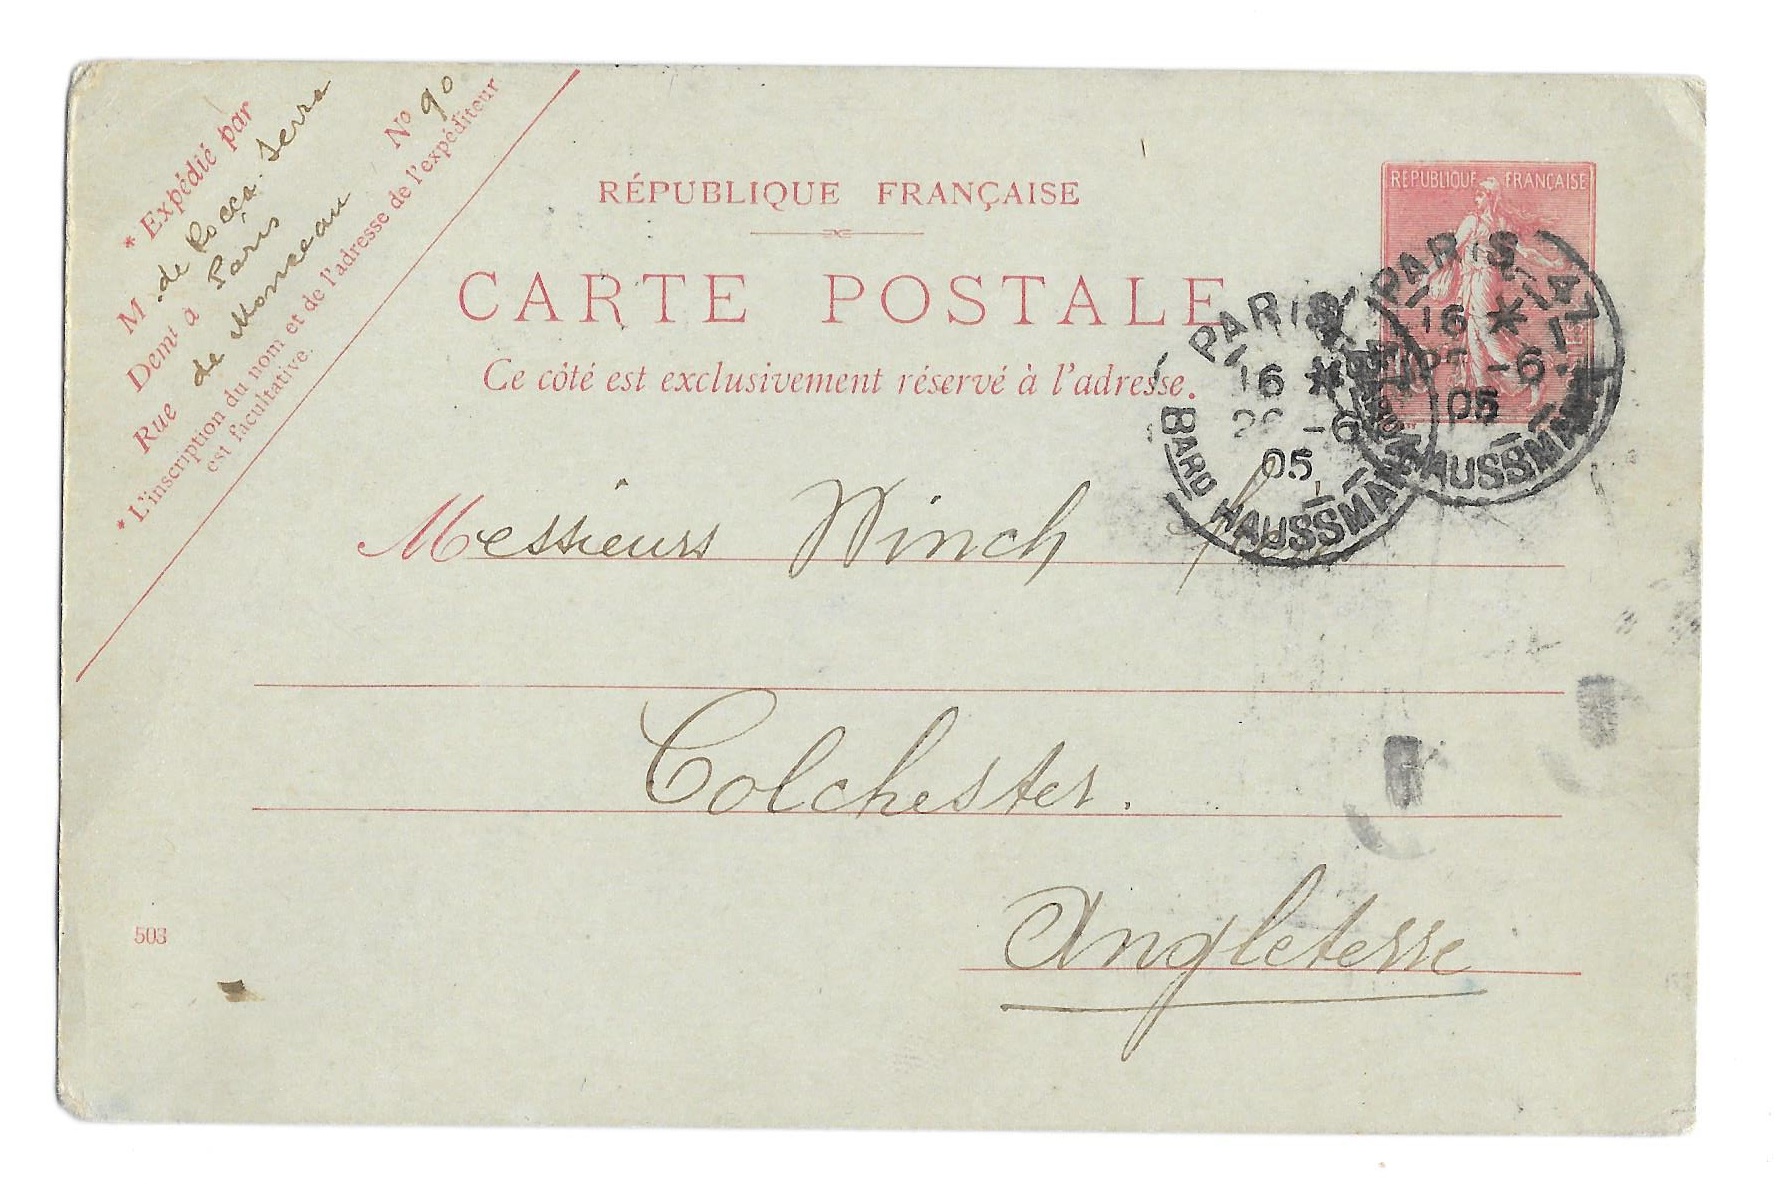 * Expédié par
M. de Rocca-Serra
Demt à Paris
Rue de Monceau No 90
* L'inscription du nom et de l'adresse de l'expéditeur
est facultative.
RÉPUBLIQUE FRANÇAISE
CARTE POSTALE
Ce côté est exclusivement réservé à l'adresse.
REPUBLIQUE FRANÇAISE
PARIS 47
16 *
-6
05
BARD HAUSSMANN
PARIS
16 *
-6
05
HAUSSMANN
Messieurs Winch
Colchester.
Angleterre
503